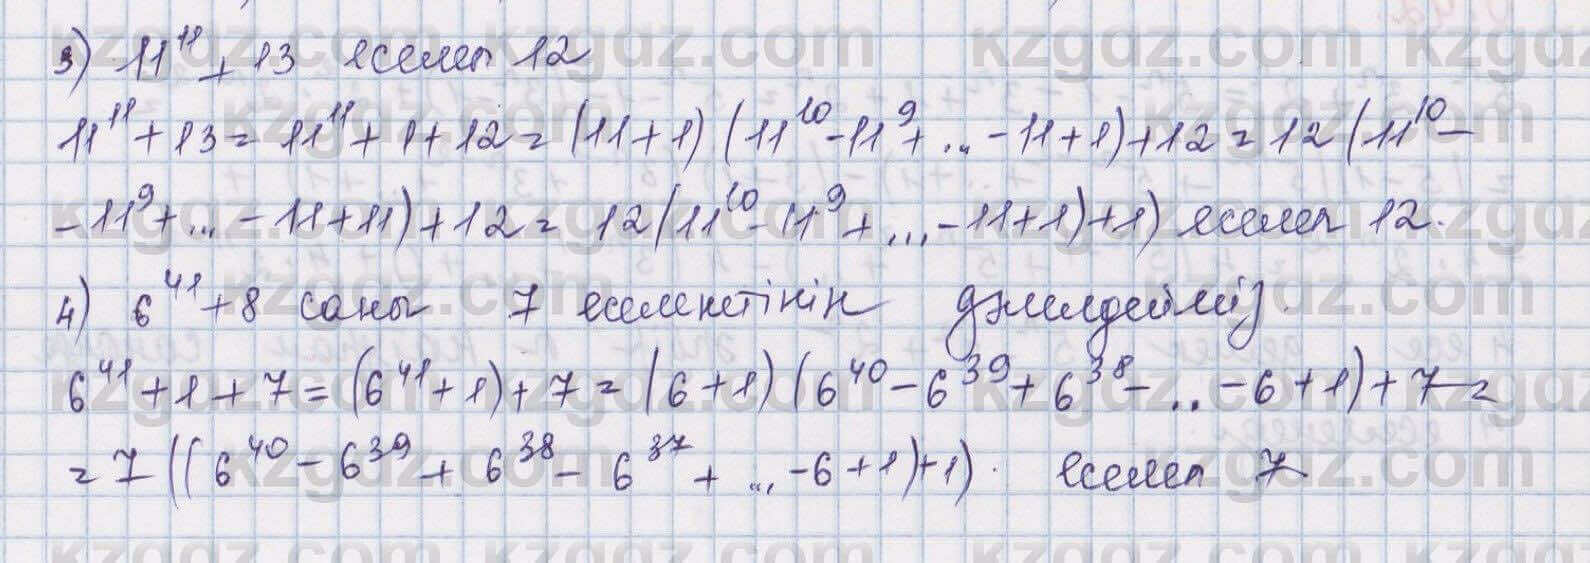 3) 11¹¹ + 13 еселеп 12
11¹¹ + 13 = 11¹¹ + 1 + 12 = (11 + 1) (11¹⁰ - 11⁹ + ... - 11 + 1) + 12 = 12 (11¹⁰ -
- 11⁹ + ... - 11 + 11) + 12 = 12 (11¹⁰ - 11⁹ + ... - 11 + 1) + 1) еселеп 12.
4) 6⁴¹ + 8 саны 7 еселенетінін дәлелдейміз.
6⁴¹ + 1 + 7 = (6⁴¹ + 1) + 7 = (6 + 1) (6⁴⁰ - 6³⁹ + 6³⁸ - ... - 6 + 1) + 7 =
= 7 ((6⁴⁰ - 6³⁹ + 6³⁸ - 6³⁷ + ... - 6 + 1) + 1). еселеп 7
kzgdz.com